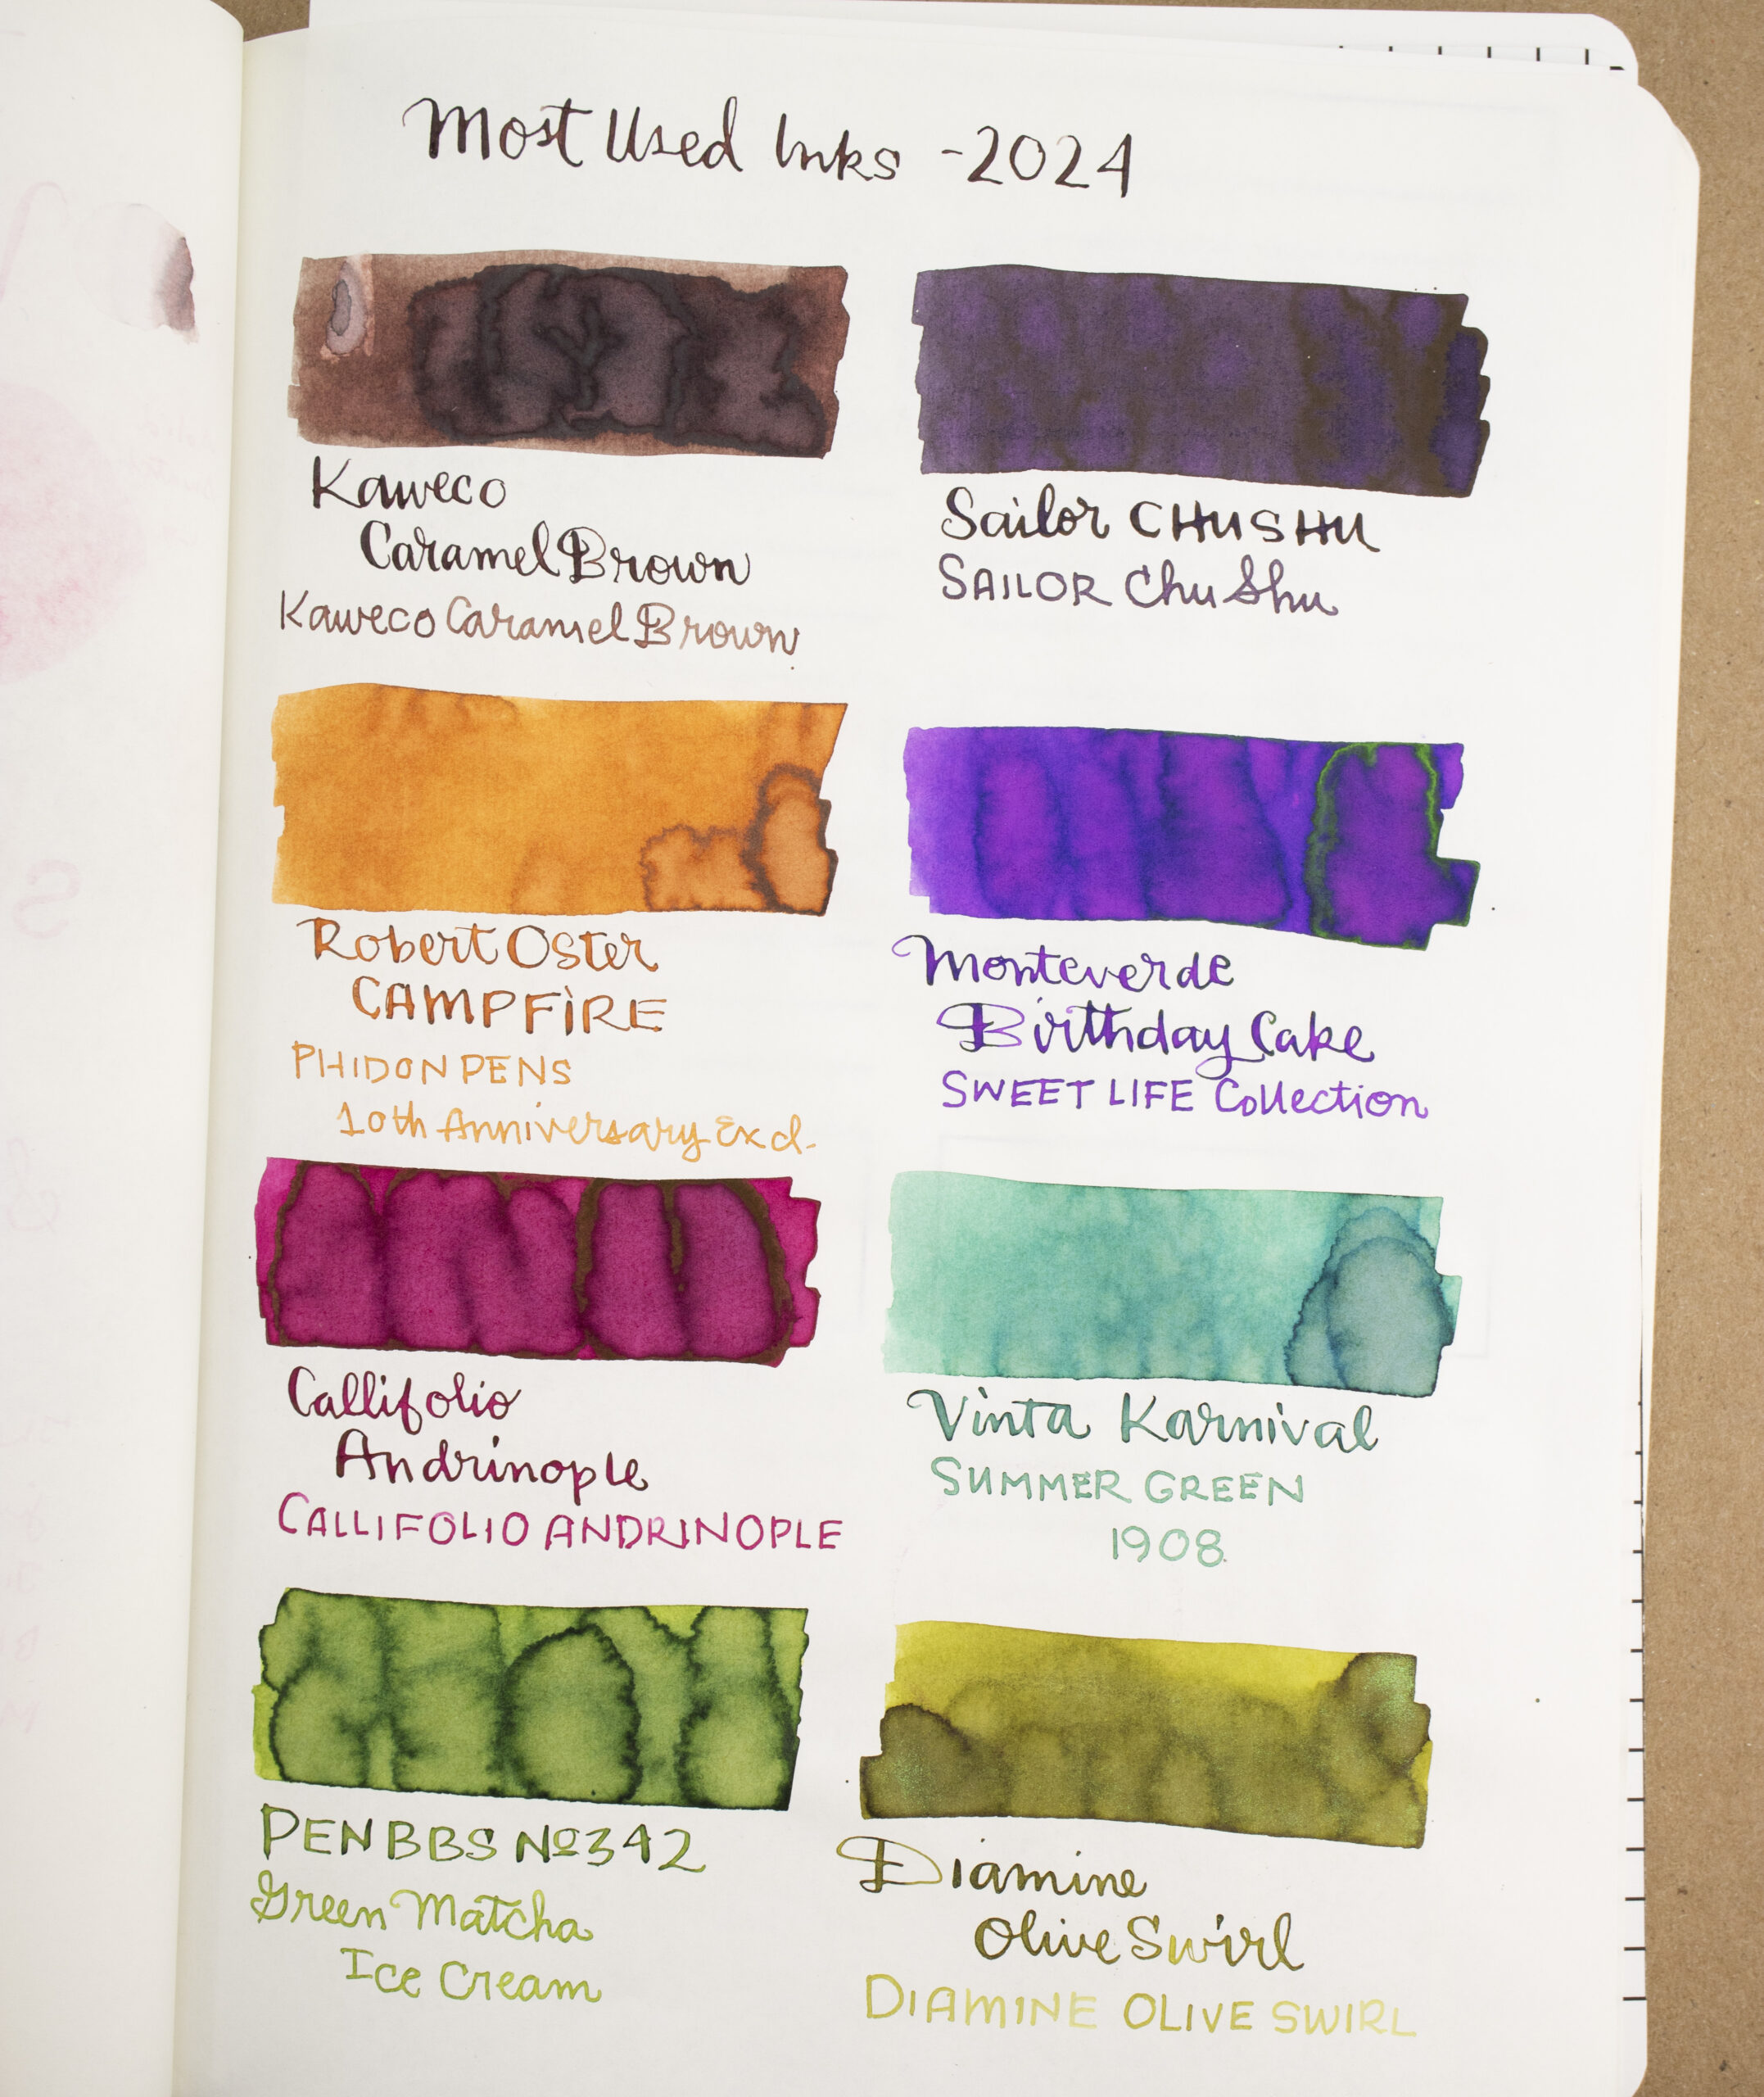 Most Used Inks - 2024
Kaweco
Caramel Brown
Kaweco Caramel Brown
Sailor CHUSHU
SAILOR Chu Shu
Robert Oster
CAMPFIRE
PHIDON PENS
10th Anniversary Excl.
Monteverde
Birthday Cake
SWEET LIFE Collection
Callifolio
Andrinople
CALLIFOLIO ANDRINOPLE
Vinta Karnival
SUMMER GREEN
1908
PENBBS Nº342
Green Matcha
Ice Cream
Diamine
Olive Swirl
DIAMINE OLIVE SWIRL